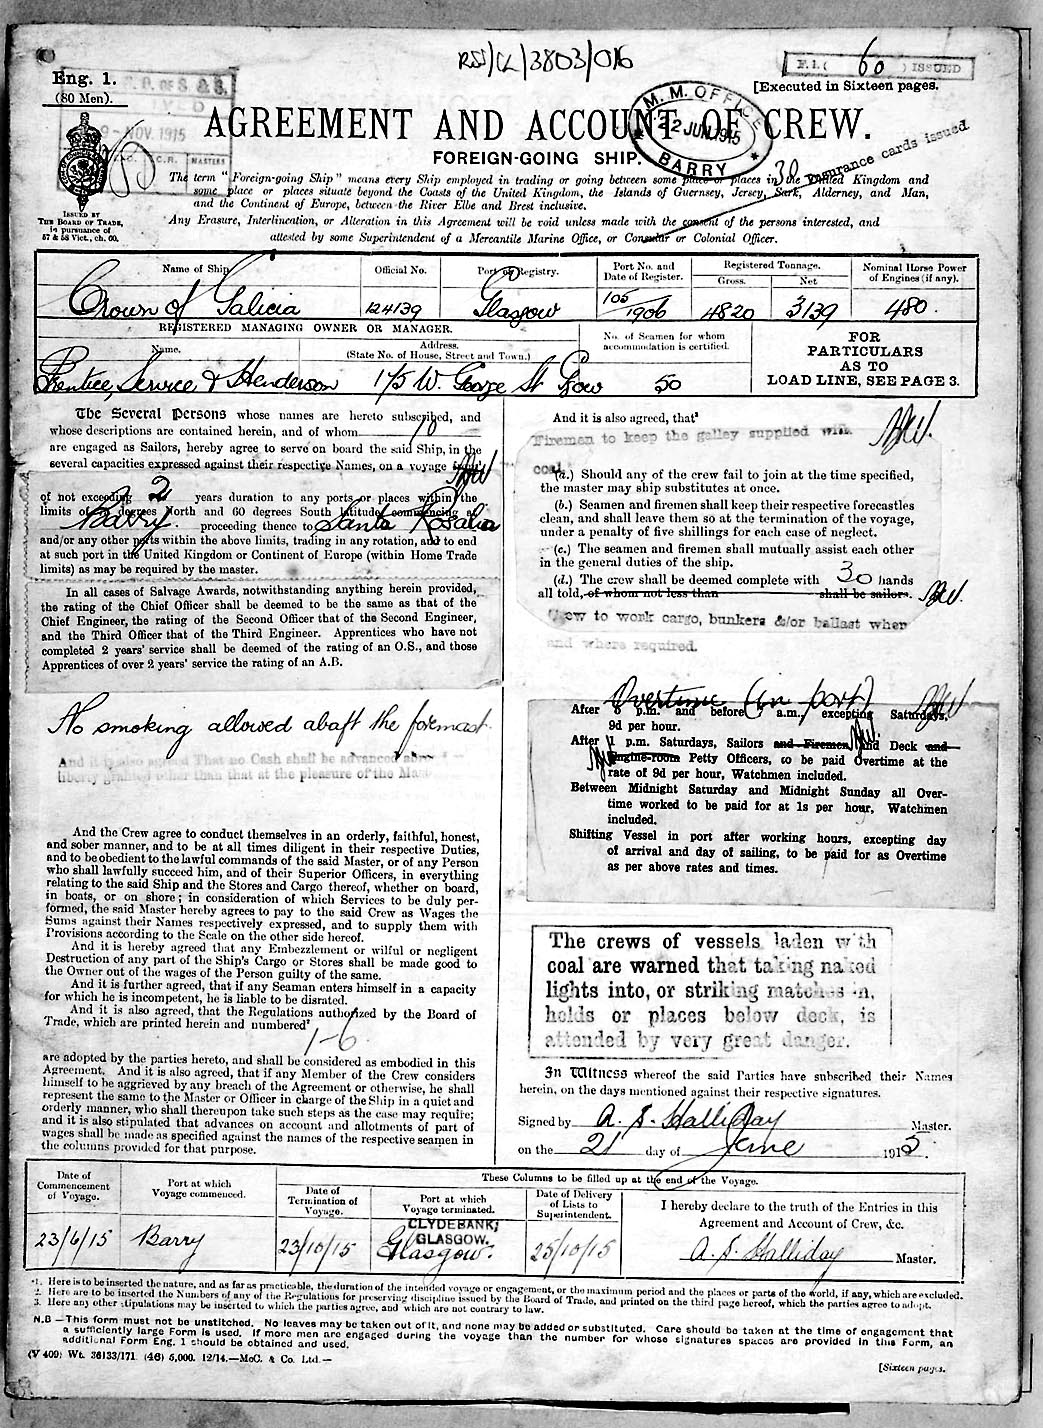 RSS/CL/3803/016
Eng. 1.
(80 Men).
F.1.( 60 ) ISSUED
[Executed in Sixteen pages.
9-NOV.1915
C.R. MASTERS
M. M. OFFICE
22 JUN.1915
BARRY
AGREEMENT AND ACCOUNT OF CREW.
FOREIGN-GOING SHIP.
30 insurance cards issued
ISSUED BY
THE BOARD OF TRADE,
in pursuance of
57 & 58 Vict., ch. 60.
The term "Foreign-going Ship" means every Ship employed in trading or going between some place or places in the United Kingdom and
some place or places situate beyond the Coasts of the United Kingdom, the Islands of Guernsey, Jersey, Sark, Alderney, and Man,
and the Continent of Europe, between the River Elbe and Brest inclusive.
Any Erasure, Interlineation, or Alteration in this Agreement will be void unless made with the consent of the persons interested, and
attested by some Superintendent of a Mercantile Marine Office, or Consular or Colonial Officer.
Name of Ship. Official No. Port of Registry. Port No. and Date of Register. Registered Tonnage. Gross. Net Nominal Horse Power of Engines (if any).
Crown of Galicia 124139 Glasgow 105/1906 4820 3139 480.
REGISTERED MANAGING OWNER OR MANAGER.
Name. Address. (State No. of House, Street and Town.)
No. of Seamen for whom accommodation is certified.
Prentice, Service & Henderson 175 W. George St Gow 50
FOR
PARTICULARS
AS TO
LOAD LINE, SEE PAGE 3.
The Several Persons whose names are hereto subscribed, and
whose descriptions are contained herein, and of whom 10
are engaged as Sailors, hereby agree to serve on board the said Ship, in the
several capacities expressed against their respective Names, on a voyage
of not exceeding 2 years duration to any ports or places within the
limits of degrees North and 60 degrees South latitude commencing at
Barry. proceeding thence to Santa Rosalia
and/or any other ports within the above limits, trading in any rotation, and to end
at such port in the United Kingdom or Continent of Europe (within Home Trade
limits) as may be required by the master.
In all cases of Salvage Awards, notwithstanding anything herein provided,
the rating of the Chief Officer shall be deemed to be the same as that of the
Chief Engineer, the rating of the Second Officer that of the Second Engineer,
and the Third Officer that of the Third Engineer. Apprentices who have not
completed 2 years' service shall be deemed of the rating of an O.S., and those
Apprentices of over 2 years' service the rating of an A.B.
No smoking allowed abaft the foremast.
And it is also agreed That no Cash shall be advanced
liberty granted other than that at the pleasure of the
And the Crew agree to conduct themselves in an orderly, faithful, honest,
and sober manner, and to be at all times diligent in their respective Duties,
and to be obedient to the lawful commands of the said Master, or of any Person
who shall lawfully succeed him, and of their Superior Officers, in everything
relating to the said Ship and the Stores and Cargo thereof, whether on board,
in boats, or on shore; in consideration of which Services to be duly per-
formed, the said Master hereby agrees to pay to the said Crew as Wages the
Sums against their Names respectively expressed, and to supply them with
Provisions according to the Scale on the other side hereof.
And it is hereby agreed that any Embezzlement or wilful or negligent
Destruction of any part of the Ship's Cargo or Stores shall be made good to
the Owner out of the wages of the Person guilty of the same.
And it is further agreed, that if any Seaman enters himself in a capacity
for which he is incompetent, he is liable to be disrated.
And it is also agreed, that the Regulations authorized by the Board of
Trade, which are printed herein and numbered²
1-6.
are adopted by the parties hereto, and shall be considered as embodied in this
Agreement. And it is also agreed, that if any Member of the Crew considers
himself to be aggrieved by any breach of the Agreement or otherwise, he shall
represent the same to the Master or Officer in charge of the Ship in a quiet and
orderly manner, who shall thereupon take such steps as the case may require;
and it is also stipulated that advances on account and allotments of part of
wages shall be made as specified against the names of the respective seamen in
the columns provided for that purpose.
And it is also agreed, that³
Firemen to keep the galley supplied with
coal.
(a.) Should any of the crew fail to join at the time specified,
the master may ship substitutes at once.
(b.) Seamen and firemen shall keep their respective forecastles
clean, and shall leave them so at the termination of the voyage,
under a penalty of five shillings for each case of neglect.
(c.) The seamen and firemen shall mutually assist each other
in the general duties of the ship.
(d.) The crew shall be deemed complete with 30 hands
all told, of whom not less than shall be sailors.
Crew to work cargo, bunkers &/or ballast when
and where required.
Overtime (in port)
After p.m. and before a.m., excepting Saturdays,
9d per hour.
After 1 p.m. Saturdays, Sailors and Firemen and Deck and
Engine-room Petty Officers, to be paid Overtime at the
rate of 9d per hour, Watchmen included.
Between Midnight Saturday and Midnight Sunday all Over-
time worked to be paid for at 1s per hour, Watchmen
included.
Shifting Vessel in port after working hours, excepting day
of arrival and day of sailing, to be paid for as Overtime
as per above rates and times.
The crews of vessels laden with
coal are warned that taking naked
lights into, or striking matches in,
holds or places below deck, is
attended by very great danger.
In Witness whereof the said Parties have subscribed their Names
herein, on the days mentioned against their respective signatures.
Signed by A. S. Halliday Master.
on the 21 day of June 1915.
Date of Commencement of Voyage. Port at which Voyage commenced.
These Columns to be filled up at the end of the Voyage.
Date of Termination of Voyage. Port at which Voyage terminated. Date of Delivery of Lists to Superintendent.
I hereby declare to the truth of the Entries in this
Agreement and Account of Crew, &c.
CLYDEBANK,
GLASGOW.
23/6/15 Barry 23/10/15 Glasgow. 25/10/15 A. S. Halliday Master.
1. Here is to be inserted the nature, and as far as practicable, the duration of the intended voyage or engagement, or the maximum period and the places or parts of the world, if any, which are excluded.
2. Here are to be inserted the Numbers of any of the Regulations for preserving discipline issued by the Board of Trade, and printed on the third page hereof, which the parties agree to adopt.
3. Here any other stipulations may be inserted to which the parties agree, and which are not contrary to law.
N.B—This form must not be unstitched. No leaves may be taken out of it, and none may be added or substituted. Care should be taken at the time of engagement that
a sufficiently large Form is used. If more men are engaged during the voyage than the number for whose signatures spaces are provided in this Form, an
additional Form Eng. 1 should be obtained and used.
(V 409) Wt. 36133/171 (46) 5,000. 12/14.—McC. & Co. Ltd.—
[Sixteen pages.